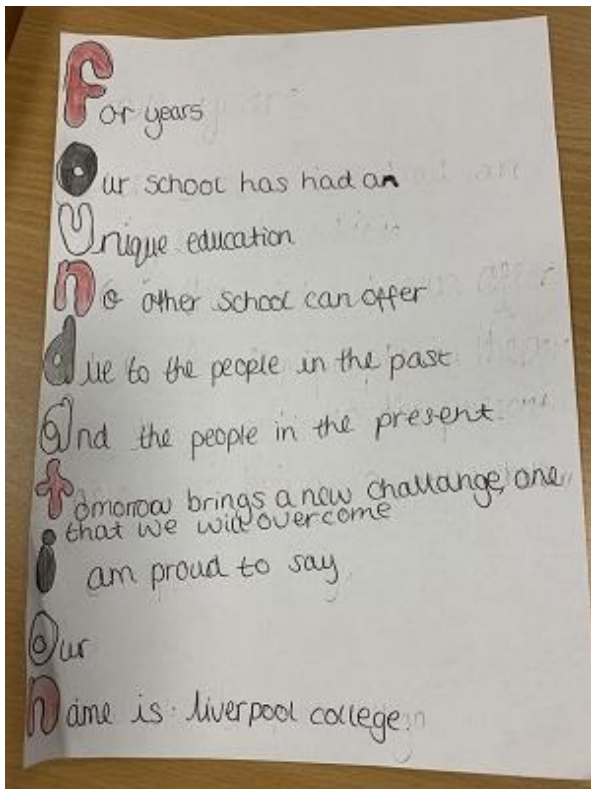 For years
Our school has had an
Unique education
no other school can offer
due to the people in the past
And the people in the present.
tomorrow brings a new challange, one
that we will overcome
i am proud to say
Our
name is liverpool college.